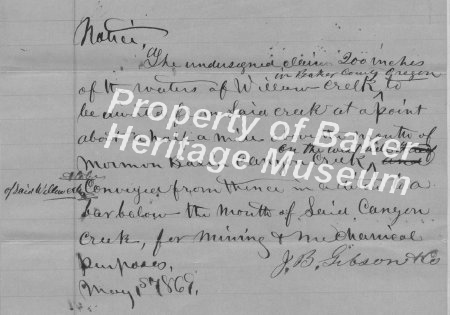 Notice,
The undersigned claim 200 inches
in Baker County Oregon
of the waters of Willow Creek to
be from said creek at a point
about a mile the mouth of
Mormon Creek
of said Willow Creek
Conveyed from thence in a a
bar below the mouth of Said Canyon
Creek, for mining & mechanical
purposes,
J. B. Gibson & Co
May 1st 1869.
Property of Baker
Heritage Museum